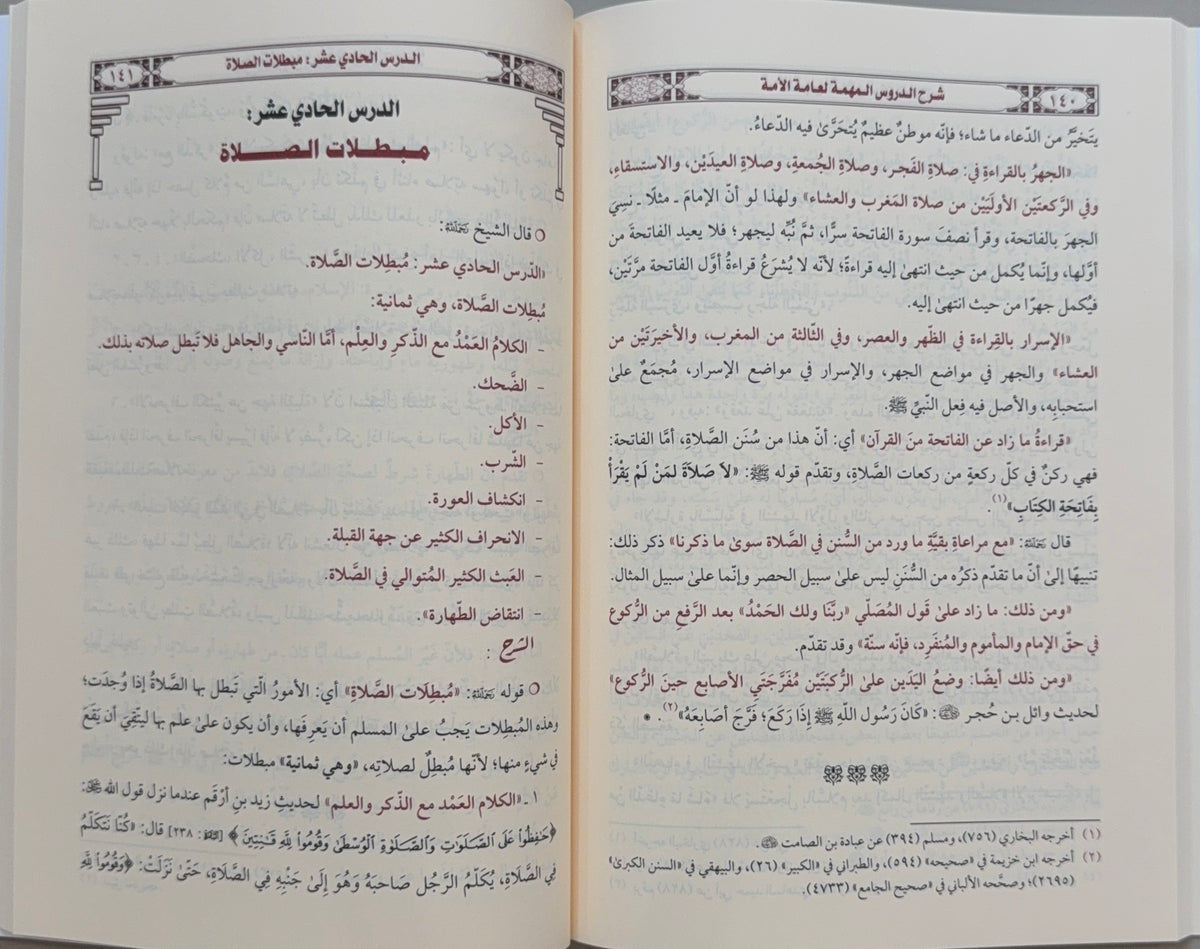 شرح الدروس المهمة لعامة الأمة
١٤٠
يتَخيَّر من الدّعاء ما شاء؛ فإنّه موطنٌ عظيمٌ يُتحَرَّىٰ فيه الدّعاءُ.
«الجهرُ بالقراءةِ في: صلاةِ الفَجر، وصلاةِ الجُمعةِ، وصلاةِ العيدَيْن، والاستسقاء،
وفي الرَّكعتَيْن الأولَيَيْن من صلاة المَغرب والعشاء» ولهذا لو أنّ الإمامَ ـ مثلًا ـ نسِيَ
الجهرَ بالفاتحة، وقرأ نصفَ سورة الفاتحة سرًّا، ثمَّ نُبِّه ليجهر؛ فلا يعيد الفاتحةَ من
أوَّلها، وإنّما يُكمل من حيث انتهىٰ إليه قراءةً؛ لأنّه لا يُشرَعُ قراءةُ أوَّل الفاتحة مرَّتَيْن،
فيُكمل جهرًا من حيث انتهىٰ إليه.
«الإسرار بالقِراءة في الظّهر والعصر، وفي الثّالثة من المغرب، والأخيرَتَيْن من
العشاء» والجهر في مواضع الجهر، والإسرار في مواضع الإسرار، مُجمَعٌ علىٰ
استحبابِه، والأصل فيه فِعل النّبيِّ ﷺ.
«قراءةُ ما زاد عن الفاتحة منَ القرآن» أي: أنّ هذا من سُنَن الصَّلاةِ، أمَّا الفاتحة:
فهي ركنٌ في كلّ ركعةٍ من ركعات الصَّلاةِ، وتقدّم قوله ﷺ: «لاَ صَلاَةَ لمَنْ لَمْ يَقْرَأْ
بِفَاتِحَةِ الكِتَابِ»(١).
قال رَحِمَهُ اللهُ: «مع مراعاةِ بقيَّةِ ما ورد من السُّنن في الصَّلاة سوىٰ ما ذكرنا» ذكر ذلك:
تنبيهًا إلىٰ أنّ ما تقدّم ذكرُه من السُّنَنِ ليس علىٰ سبيل الحصر وإنّما علىٰ سبيل المثال.
«ومن ذلك: ما زاد علىٰ قَول المُصَلّي «ربَّنا ولك الحَمْدُ» بعد الرَّفعِ من الرُّكوع
في حقّ الإمام والمأموم والمُنفَرِد، فإنّه سنّة» وقد تقدّم.
«ومن ذلك أيضًا: وضعُ اليَدَين علىٰ الرُّكبَتَيْن مُفَرَّجَتَي الأصابع حينَ الرُّكوع»
لحديث وائل بن حُجر رَضِيَ اللهُ عَنْهُ: «كَانَ رَسُول اللَّهِ ﷺ إِذَا رَكَعَ؛ فَرَّجَ أصَابِعَهُ»(٢).
(١) أخرجه البخاري (٧٥٦)، ومسلم (٣٩٤) عن عبادة بن الصامت رَضِيَ اللهُ عَنْهُ.
(٢) أخرجه ابن خزيمة في «صحيحه» (٥٩٤)، والطبراني في «الكبير» (٢٦)، والبيهقي في «السنن الكبرىٰ»
(٢٦٩٥)؛ وصحَّحه الألباني في «صحيح الجامع» (٤٧٣٣).
الدرس الحادي عشر: مبطلات الصلاة
١٤١
الدرس الحادي عشر:
مبطلات الصلاة
قال الشيخ رَحِمَهُ اللهُ:
«الدّرس الحادي عشر: مُبطِلات الصَّلاة.
مُبطِلات الصَّلاة، وهي ثمانية:
- الكلامُ العَمْدُ مع الذّكرِ والعِلْم، أمَّا النّاسي والجاهل فلا تَبطل صلاته بذلك.
- الضَّحك.
- الأكل.
- الشّرب.
- انكشاف العورة.
- الانحراف الكثير عن جهة القبلة.
- العَبث الكثير المُتوالي في الصَّلاة.
- انتقاضُ الطّهارة».
الشرح :
قوله رَحِمَهُ اللهُ: «مُبطِلَات الصَّلَاةِ» أي: الأمورُ الّتي تَبطل بها الصَّلاةُ إذا وُجدَت؛
وهذه المُبطِلات يَجبُ علىٰ المسلم أن يَعرِفَها، وأن يكون علىٰ علم بها ليتَّقيَ أن يَقَعَ
في شيءٍ منها؛ لأنّها مُبطِلٌ لصلاتِه، «وهي ثمانية» مبطلات:
١ـ «الكلام العَمْد مع الذّكر والعلم» لحديثِ زيد بنِ أرْقَم عندما نزل قول الله ﷻ:
﴿حَٰفِظُوا۟ عَلَى ٱلصَّلَوَٰتِ وَٱلصَّلَوٰةِ ٱلْوُسْطَىٰ وَقُومُوا۟ لِلَّهِ قَٰنِتِينَ﴾ [البقرة: ٢٣٨] قال: «كُنَّا نَتَكَلَّمُ
فِي الصَّلَاةِ، يُكَلِّمُ الرَّجُل صَاحبَهُ وَهُوَ إِلَىٰ جَنْبِهِ فِي الصَّلَاةِ، حَتَّىٰ نَزَلَتْ: ﴿وَقُومُوا۟ لِلَّهِ